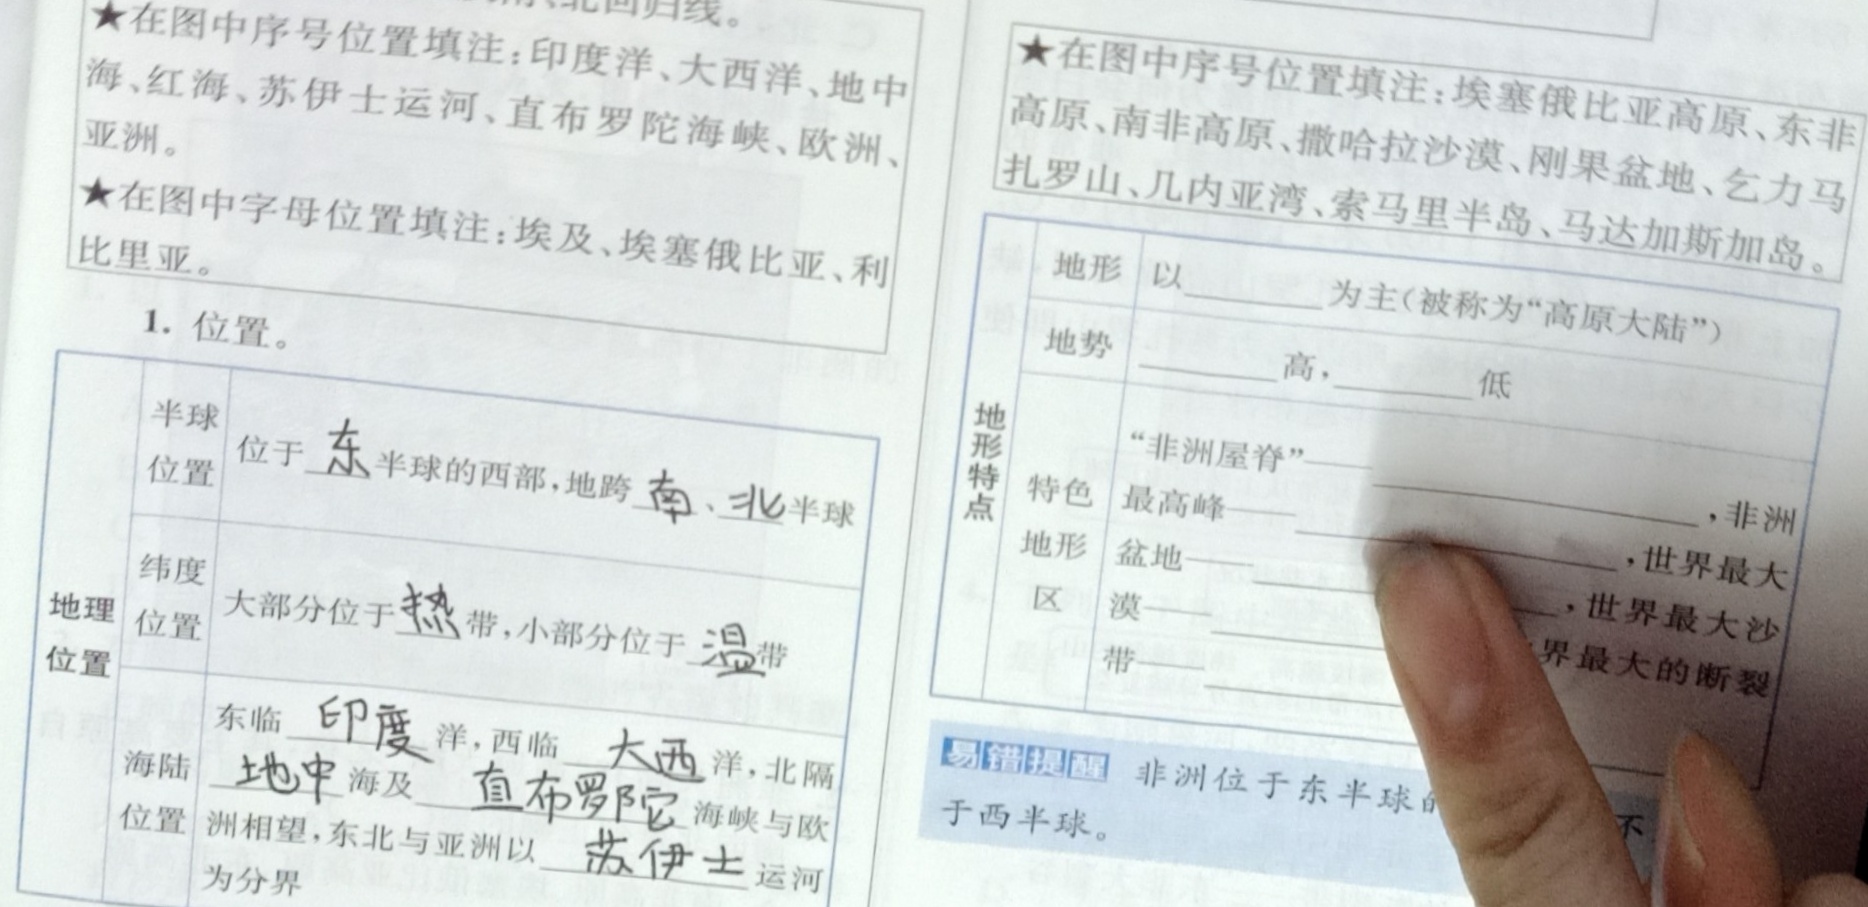 北回归线。
★在图中序号位置填注:印度洋、大西洋、地中
海、红海、苏伊士运河、直布罗陀海峡、欧洲、
亚洲。
★在图中字母位置填注:埃及、埃塞俄比亚、利
比里亚。
1. 位置。
地理
位置
半球
位置
位于东半球的西部,地跨南、北半球
纬度
位置
大部分位于热带,小部分位于温带
海陆
位置
东临印度洋,西临大西洋,北隔
地中海及直布罗陀海峡与欧
洲相望,东北与亚洲以苏伊士运河
为分界
★在图中序号位置填注:埃塞俄比亚高原、东非
高原、南非高原、撒哈拉沙漠、刚果盆地、乞力马
扎罗山、几内亚湾、索马里半岛、马达加斯加岛。
地形特点
地形
以______为主(被称为“高原大陆”)
地势
______高,______低
特色
地形
区
“非洲屋脊”——______,非洲
最高峰——______,世界最大
盆地——______,世界最大沙
漠——______界最大的断裂
带——______
易错提醒 非洲位于东半球的 不
于西半球。